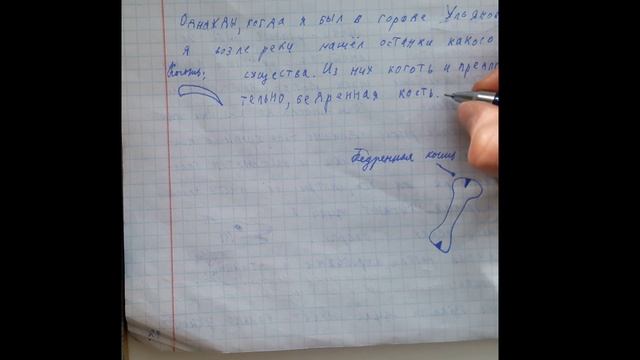 Однажды, когда я был в городе Ульянов
я возле реки нашёл останки какого
существа. Из них коготь и предпо
тельно, бедренная кость.
Коготь:
Бедренная кость